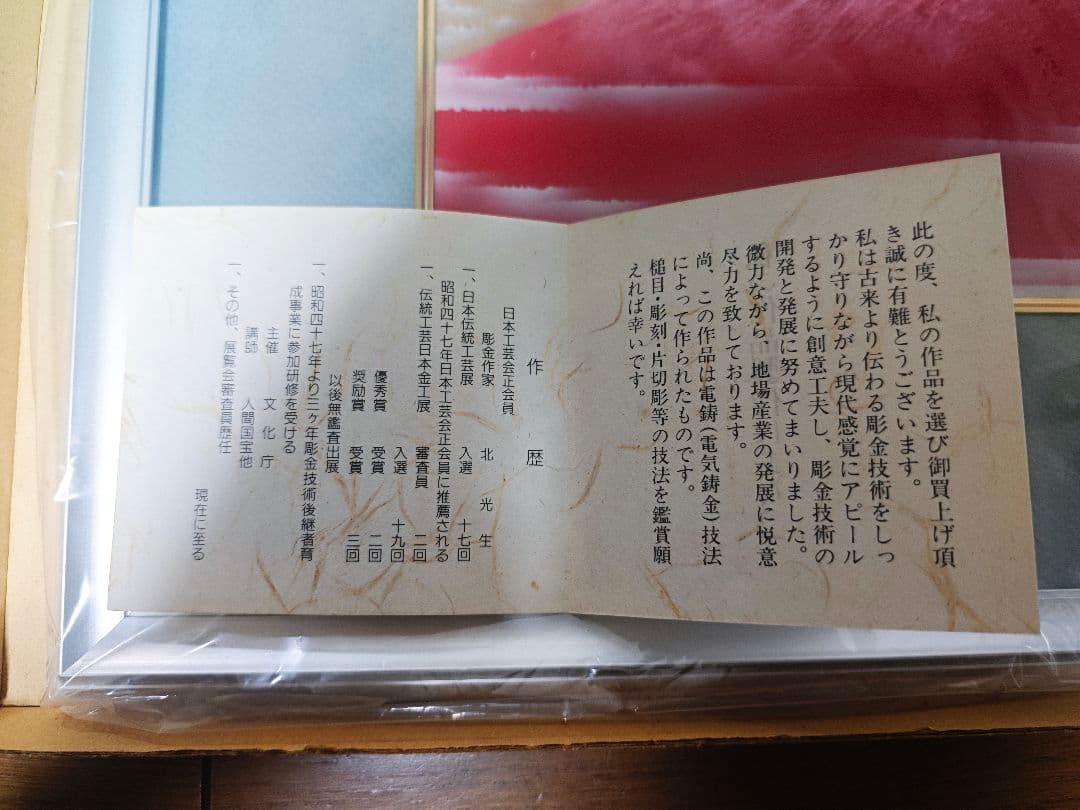 此の度、私の作品を選び御買上げ頂
き誠に有難とうございます。
私は古来より伝わる彫金技術をしっ
かり守りながら現代感覚にアピール
するように創意工夫し、彫金技術の
開発と発展に努めてまいりました。
微力ながら、地場産業の発展に悦意
尽力を致しております。
尚、この作品は電鋳(電気鋳金)技法
によって作られたものです。
槌目・彫刻・片切彫等の技法を鑑賞願
えれば幸いです。
作歴
日本工芸会正会員
彫金作家 北光生
一、日本伝統工芸展 入選 十七回
昭和四十七年日本工芸会正会員に推薦される
一、伝統工芸日本金工展 審査員 二回
入選 十九回
優秀賞 受賞 二回
奨励賞 受賞 三回
以後無鑑査出展
一、昭和四十七年より三ヶ年彫金技術後継者育
成事業に参加研修を受ける
主催 文化庁
講師 人間国宝他
一、その他、展覧会審査員歴任
現在に至る